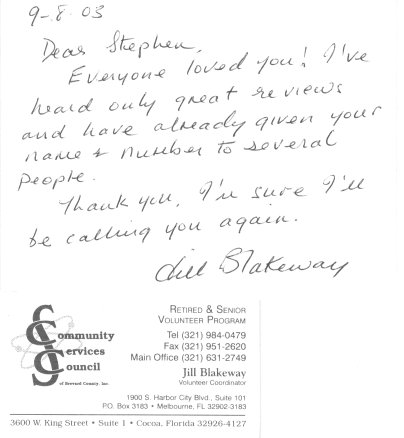 9-8.03
Dear Stephen,
Everyone loved you! I've
heard only great reviews
and have already given your
name & number to several
people.
Thank you, I'm sure I'll
be calling you again.
Jill Blakeway
Community
Services
Council
of Brevard County, Inc.
RETIRED & SENIOR
VOLUNTEER PROGRAM
Tel (321) 984-0479
Fax (321) 951-2620
Main Office (321) 631-2749
Jill Blakeway
Volunteer Coordinator
1900 S. Harbor City Blvd., Suite 101
P.O. Box 3183 • Melbourne, FL 32902-3183
3600 W. King Street • Suite 1 • Cocoa, Florida 32926-4127